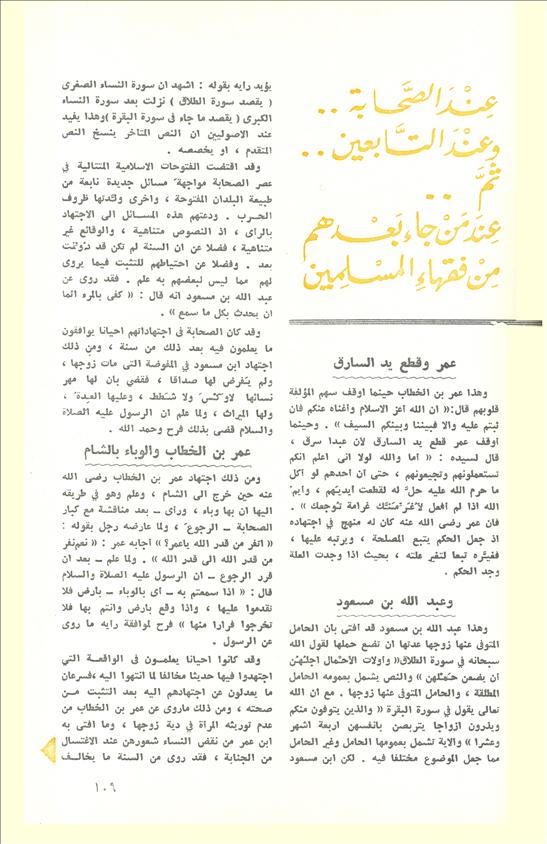 عِنْدَ الصَّحَابة ..
وعِنْدَ التَّابعين ..
ثمَّ ..
عِندَ مَنْ جاءَ بَعْدهم
مِنْ فقهاءِ المسْلِمِين
عمر وقطع يد السارق
وهذا عمر بن الخطاب حينما اوقف سهم المؤلفة
قلوبهم قال: « ان الله اعز الاسلام واغناه عنكم فان
ثبتم عليه والا فبيننا وبينكم السيف » . وحينما
أوقف عمر قطع يد السارق لان عبدا سرق ،
قال لسيده : « اما والله لولا انى اعلم انكم
تستعملونهم وتجيعونهم ، حتى ان أحدهم لو أكل
ما حرم الله عليه حلَّ له لقطعت أيديهم ، وايم
الله اذا لم افعل لأغرِّمنَّك غرامة توجعك » .
فان عمر رضى الله عنه كان له منهج في اجتهاده
اذ جعل الحكم يتبع المصلحة ، ويرتبه عليها ،
فغيَّره تبعا لتغير علته ، بحيث اذا وجدت العلة
وجد الحكم .
وعبد الله بن مسعود
وهذا عبد الله بن مسعود قد أفتى بان الحامل
المتوفى عنها زوجها عدتها ان تضع حملها لقول الله
سبحانه في سورة الطلاق« واولات الاحمال اجلهن
ان يضعن حملهن » والنص يشمل بعمومه الحامل
المطلقة ، والحامل المتوفى عنها زوجها . مع ان الله
تعالى يقول في سورة البقرة « والذين يتوفون منكم
ويذرون ازواجا يتربصن بانفسهن اربعة اشهر
وعشرا » والآية تشمل بعمومها الحامل وغير الحامل
مما جعل الموضوع مختلفا فيه . لكن ابن مسعود
يؤيد رايه بقوله : اشهد ان سورة النساء الصغرى
( يقصد سورة الطلاق ) نزلت بعد سورة النساء
الكبرى ( يقصد ما جاء فى سورة البقرة )وهذا يفيد
عند الاصوليين ان النص المتاخر ينسخ النص
المتقدم ، او يخصصه .
وقد اقتضت الفتوحات الاسلامية المتتالية في
عصر الصحابة مواجهة مسائل جديدة نابعة من
طبيعة البلدان المفتوحة ، واخرى ولَّدتها ظروف
الحرب . ودعتهم هذه المسائل الى الاجتهاد
بالراى ، اذ النصوص متناهية ، والوقائع غير
متناهية ، فضلا عن ان السنة لم تكن قد دُوّنت
بعد . وفضلا عن احتياطهم للتثبت فيما يروى
لهم مما ليس لبعضهم به علم . فقد روى عن
عبد الله بن مسعود انه قال : « كفى بالمرء اثما
ان يحدث بكل ما سمع » .
وقد كان الصحابة فى اجتهاداتهم احيانا يوافقون
ما يعلمون فيه بعد ذلك من سنة ، ومن ذلك
اجتهاد ابن مسعود في المفوضة التى مات زوجها ،
ولم يَفرض لها صداقا ، فقضى بان لها مهر
نسائها لاوكس ولا شطط ، وعليها العدة ،
ولها الميراث ، ولما علم ان الرسول عليه الصلاة
والسلام قضى بذلك فرح وحمد الله .
عمر بن الخطاب والوباء بالشام
ومن ذلك اجتهاد عمر بن الخطاب رضى الله
عنه حين خرج الى الشام ، وعلم وهو في طريقه
اليها ان بها وباء ، وراى ــ بعد مناقشة مع كبار
الصحابة ــ الرجوع ، ولما عارضه رجل بقوله :
« اتفر من قدر الله ياعمر؟ » أجابه عمر : « نعم نفر
من قدر الله الى قدر الله » . ولما علم ــ بعد ان
قرر الرجوع ــ ان الرسول عليه الصلاة والسلام
قال : « اذا سمعتم به ــ اى بالوباء ــ بارض فلا
تقدموا عليها ، واذا وقع بارض وانتم بها فلا
تخرجوا فرارا منها » فرح لموافقة رايه ما روى
عن الرسول .
وقد كانوا احيانا يعلمون فى الواقعة التي
اجتهدوا فيها حديثا مخالفا لما انتهوا اليه ،فسرعان
ما يعدلون عن اجتهادهم اليه بعد التثبت من
صحته ، ومن ذلك ماروى عن عمر بن الخطاب من
عدم توريثه المرأة في دية زوجها ، وما افتى به
ابن عمر من نقض النساء شعورهن عند الاغتسال
من الجنابة ، فقد روى من السنة ما يخالف
١٠٩